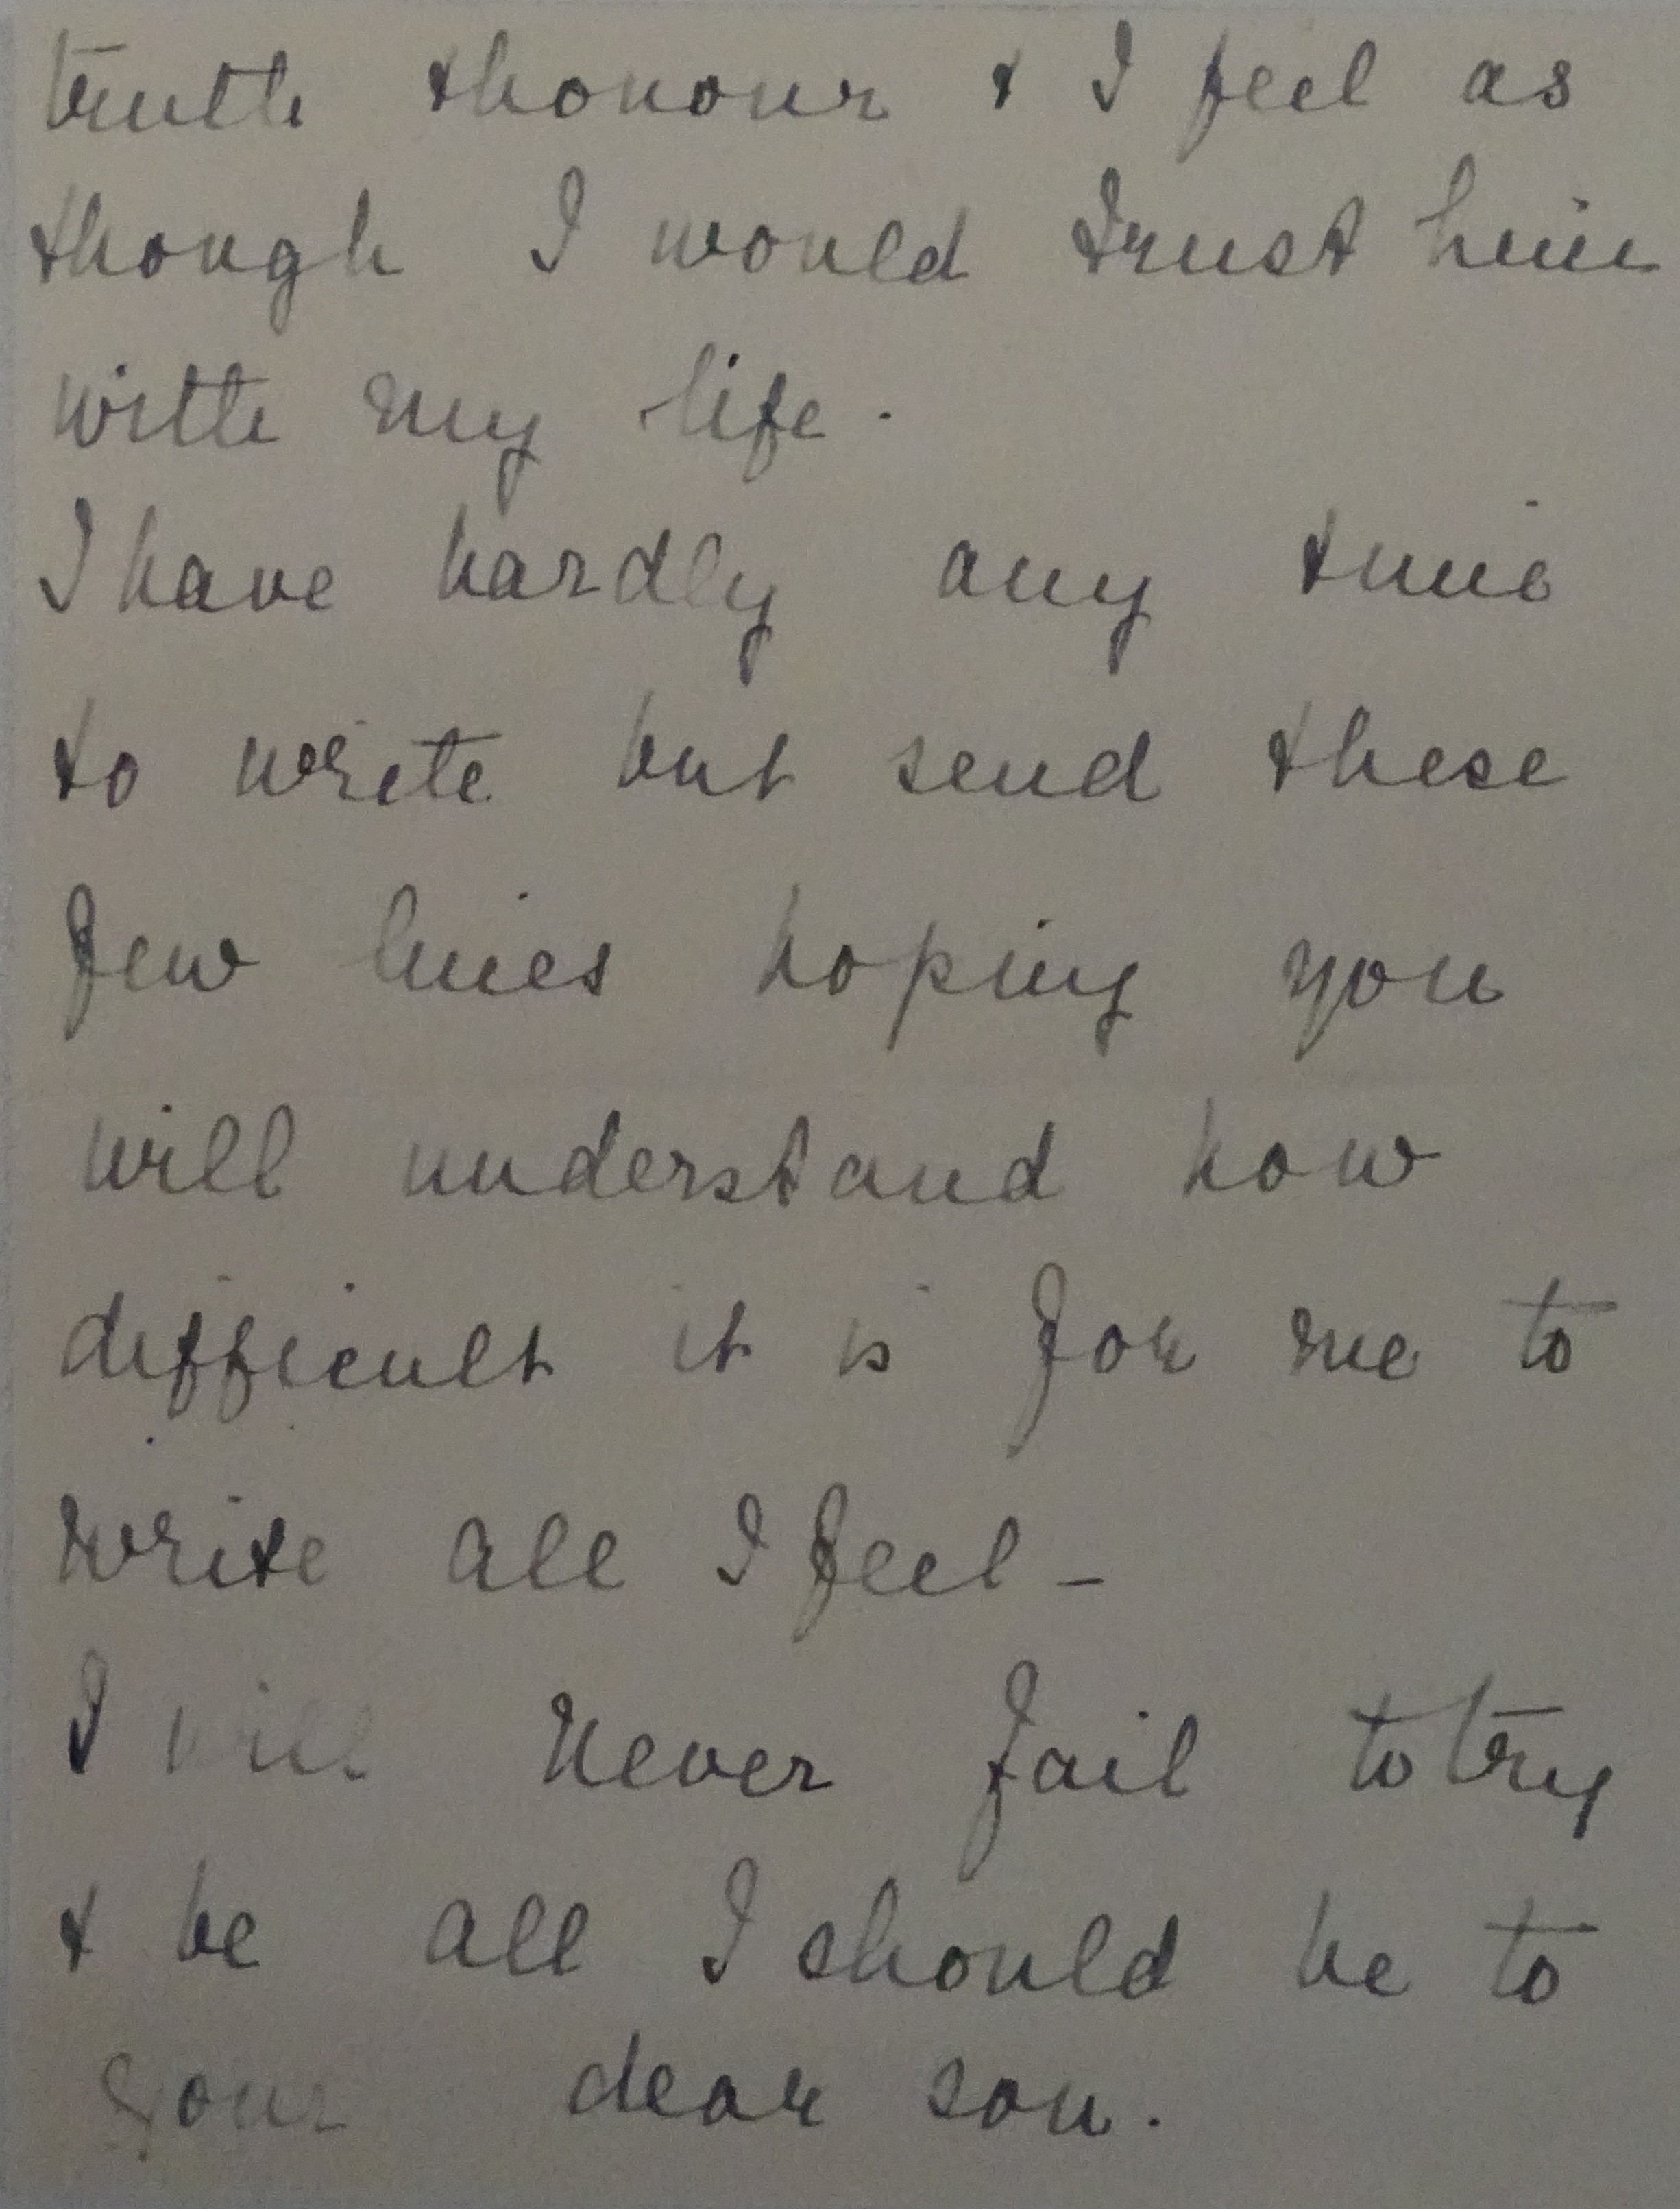 truth & honour & I feel as
though I would trust him
with my life.
I have hardly any time
to write but send these
few lines hoping you
will understand how
difficult it is for me to
write all I feel -
I will never fail to try
& be all I should be to
your dear son.